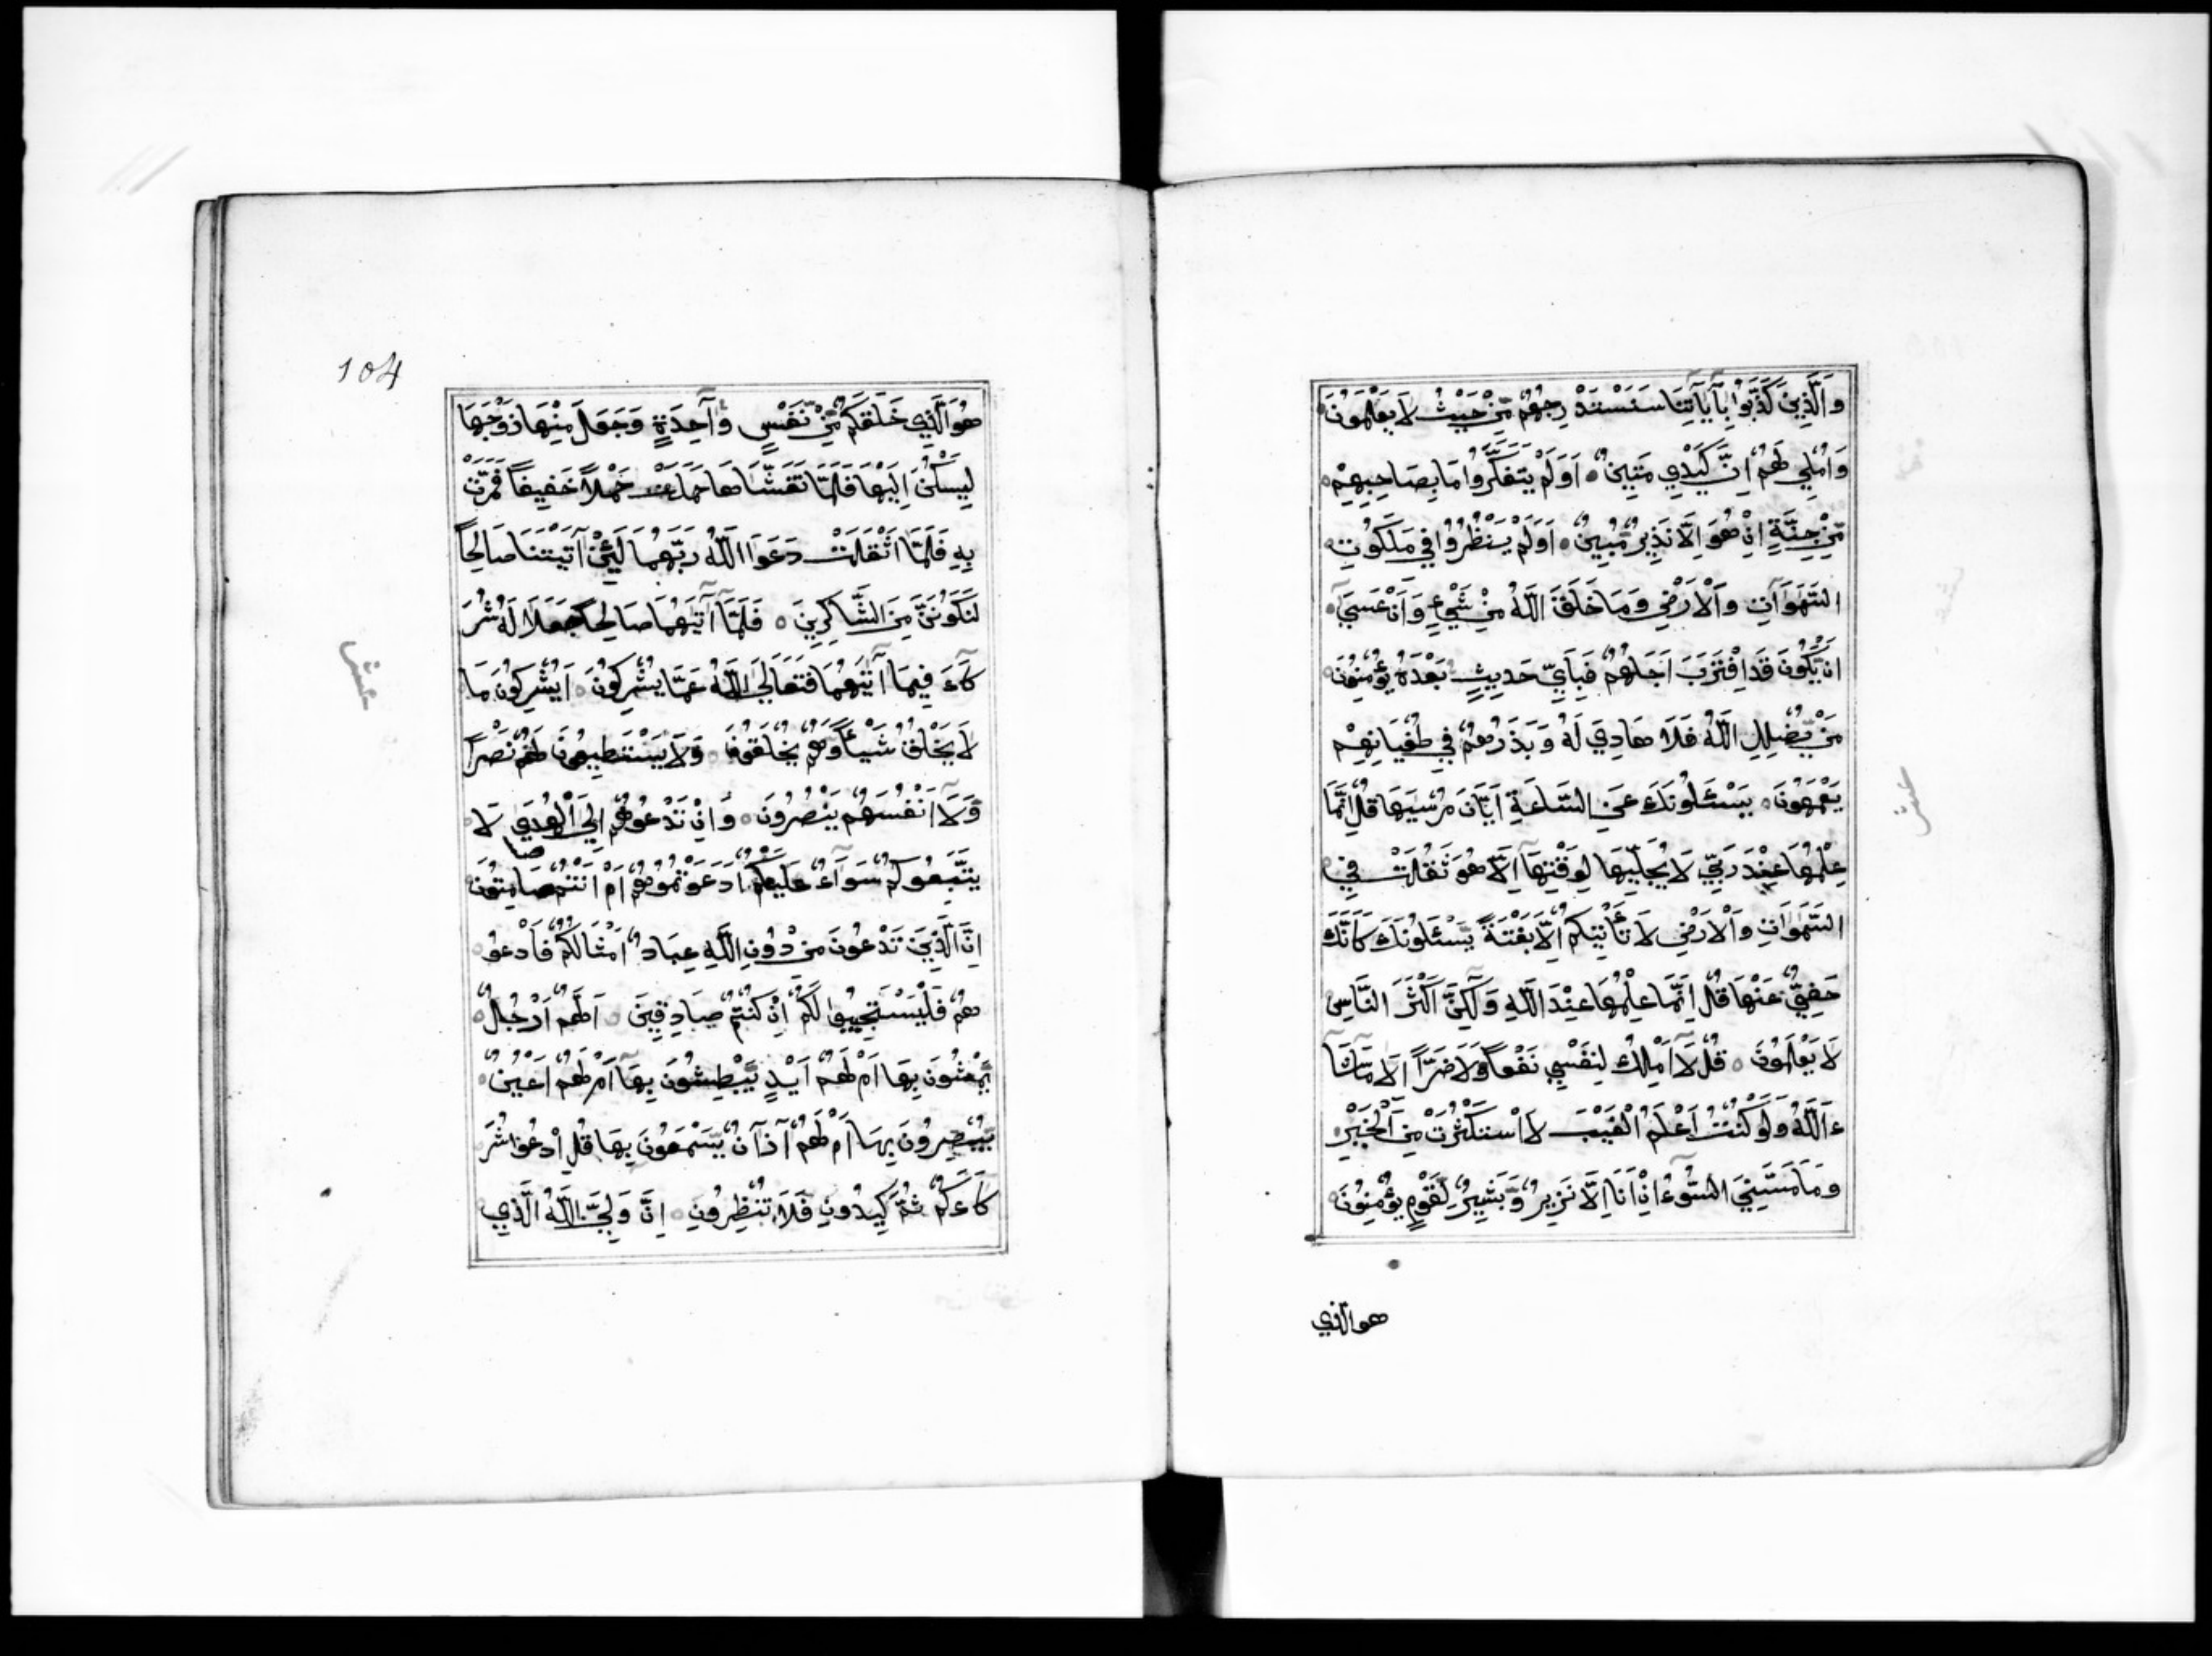 وَالَّذِينَ كَذَّبُوا بِآيَاتِنَا سَنَسْتَدْرِجُهُمْ مِّنْ حَيْثُ لَا يَعْلَمُونَ
وَاُمْلِي لَهُمْ اِنَّ كَيْدِي مَتِينٌ ۝ اَوَلَمْ يَتَفَكَّرُوا مَا بِصَاحِبِهِمْ
مِّنْ جِنَّةٍ اِنْ هُوَ اِلَّا نَذِيرٌ مُّبِينٌ ۝ اَوَلَمْ يَنْظُرُوا فِي مَلَكُوتِ
السَّمَوَاتِ وَالْاَرْضِ وَمَا خَلَقَ اللّٰهُ مِنْ شَيْءٍ وَاَنْ عَسَىَ
اَنْ يَّكُونَ قَدِ اقْتَرَبَ اَجَلُهُمْ فَبِاَيِّ حَدِيثٍ بَعْدَهُ يُؤْمِنُونَ
مَنْ يُّضْلِلِ اللّٰهُ فَلَا هَادِيَ لَهُ وَيَذَرُهُمْ فِي طُغْيَانِهِمْ
يَعْمَهُونَ ۝ يَسْئَلُونَكَ عَنِ السَّاعَةِ اَيَّانَ مُرْسَيهَا قُلْ اِنَّمَا
عِلْمُهَا عِنْدَ رَبِّي لَا يُجَلِّيهَا لِوَقْتِهَا اِلَّا هُوَ ثَقُلَتْ فِي
السَّمَوَاتِ وَالْاَرْضِ لَا تَأْتِيكُمْ اِلَّا بَغْتَةً يَسْئَلُونَكَ كَاَنَّكَ
حَفِيٌّ عَنْهَا قُلْ اِنَّمَا عِلْمُهَا عِنْدَ اللّٰهِ وَلَكِنَّ اَكْثَرَ النَّاسِ
لَا يَعْلَمُونَ ۝ قُلْ لَا اَمْلِكُ لِنَفْسِي نَفْعًا وَلَا ضَرًّا اِلَّا مَا شَا
ءَ اللّٰهُ وَلَوْ كُنْتُ اَعْلَمُ الْغَيْبَ لَا اسْتَكْثَرْتُ مِنَ الْخَيْرِ
وَمَا مَسَّنِيَ السُّوءُ اِنْ اَنَا اِلَّا نَزِيرٌ وَّبَشِيرٌ لِّقَوْمٍ يُؤْمِنُونَ
هو الذي
عشر
104
هُوَ الَّذِي خَلَقَكُمْ مِّنْ نَّفْسٍ وَاحِدَةٍ وَجَعَلَ مِنْهَا زَوْجَهَا
لِيَسْكُنَ اِلَيْهَا فَلَمَّا تَغَشَّاهَا حَمَلَتْ حَمْلًا خَفِيفًا فَمَرَّتْ
بِهِ فَلَمَّا اَثْقَلَتْ دَعَوَا اللّٰهَ رَبَّهُمَا لَئِنْ آتَيْتَنَا صَالِحًا
لَنَكُونَنَّ مِنَ الشَّاكِرِينَ ۝ فَلَمَّا آتَيهُمَا صَالِحًا جَعَلَا لَهُ شُرَ
كَاءَ فِيمَا آتَيهُمَا فَتَعَالَى اللّٰهُ عَمَّا يُشْرِكُونَ ۝ اَيُشْرِكُونَ مَا
لَا يَخْلُقُ شَيْئًا وَّهُمْ يُخْلَقُونَ ۝ وَلَا يَسْتَطِيعُونَ لَهُمْ نَصْرًا
وَّلَا اَنْفُسَهُمْ يَنْصُرُونَ ۝ وَاِنْ تَدْعُوهُمْ اِلَى الْهُدَى لَا
يَتَّبِعُوكُمْ سَوَاءٌ عَلَيْكُمْ اَدَعَوْتُمُوهُمْ اَمْ اَنْتُمْ صَامِتُونَ
اِنَّ الَّذِينَ تَدْعُونَ مِنْ دُونِ اللّٰهِ عِبَادٌ اَمْثَالُكُمْ فَادْعُو
هُمْ فَلْيَسْتَجِيبُوا لَكُمْ اِنْ كُنْتُمْ صَادِقِينَ ۝ اَلَهُمْ اَرْجُلٌ
يَّمْشُونَ بِهَا اَمْ لَهُمْ اَيْدٍ يَّبْطِشُونَ بِهَا اَمْ لَهُمْ اَعْيُنٌ
يُّبْصِرُونَ بِهَا اَمْ لَهُمْ آذَانٌ يَّسْمَعُونَ بِهَا قُلِ ادْعُوا شُرَ
كَاءَكُمْ ثُمَّ كِيدُونِ فَلَا تُنْظِرُونِ ۝ اِنَّ وَلِيَّ اللّٰهُ الَّذِي
عشر